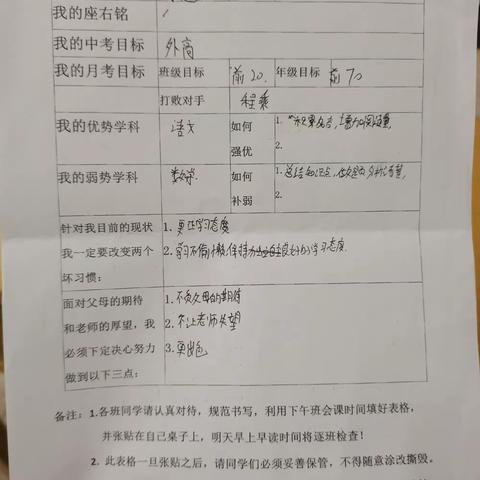 我的座右铭
我的中考目标 外高
我的月考目标 班级目标 前20. 年级目标 前70
打败对手 程乘
我的优势学科 语文 如何 1.
强优 2.
我的弱势学科 数学. 如何 1.
补弱 2.
针对我目前的现状 1. 更正学习态度
我一定要改变两个 2. 学习不偷懒,保持良好的学习态度.
坏习惯:
面对父母的期待 1. 不负父母的期待
和老师的厚望,我 2. 不让老师失望
必须下定决心努力 3. 更出色
做到以下三点:
备注: 1.各班同学请认真对待,规范书写,利用下午班会课时间填好表格,
并张贴在自己桌子上,明天早上早读时间将逐班检查!
2. 此表格一旦张贴之后,请同学们必须妥善保管,不得随意涂改撕毁。